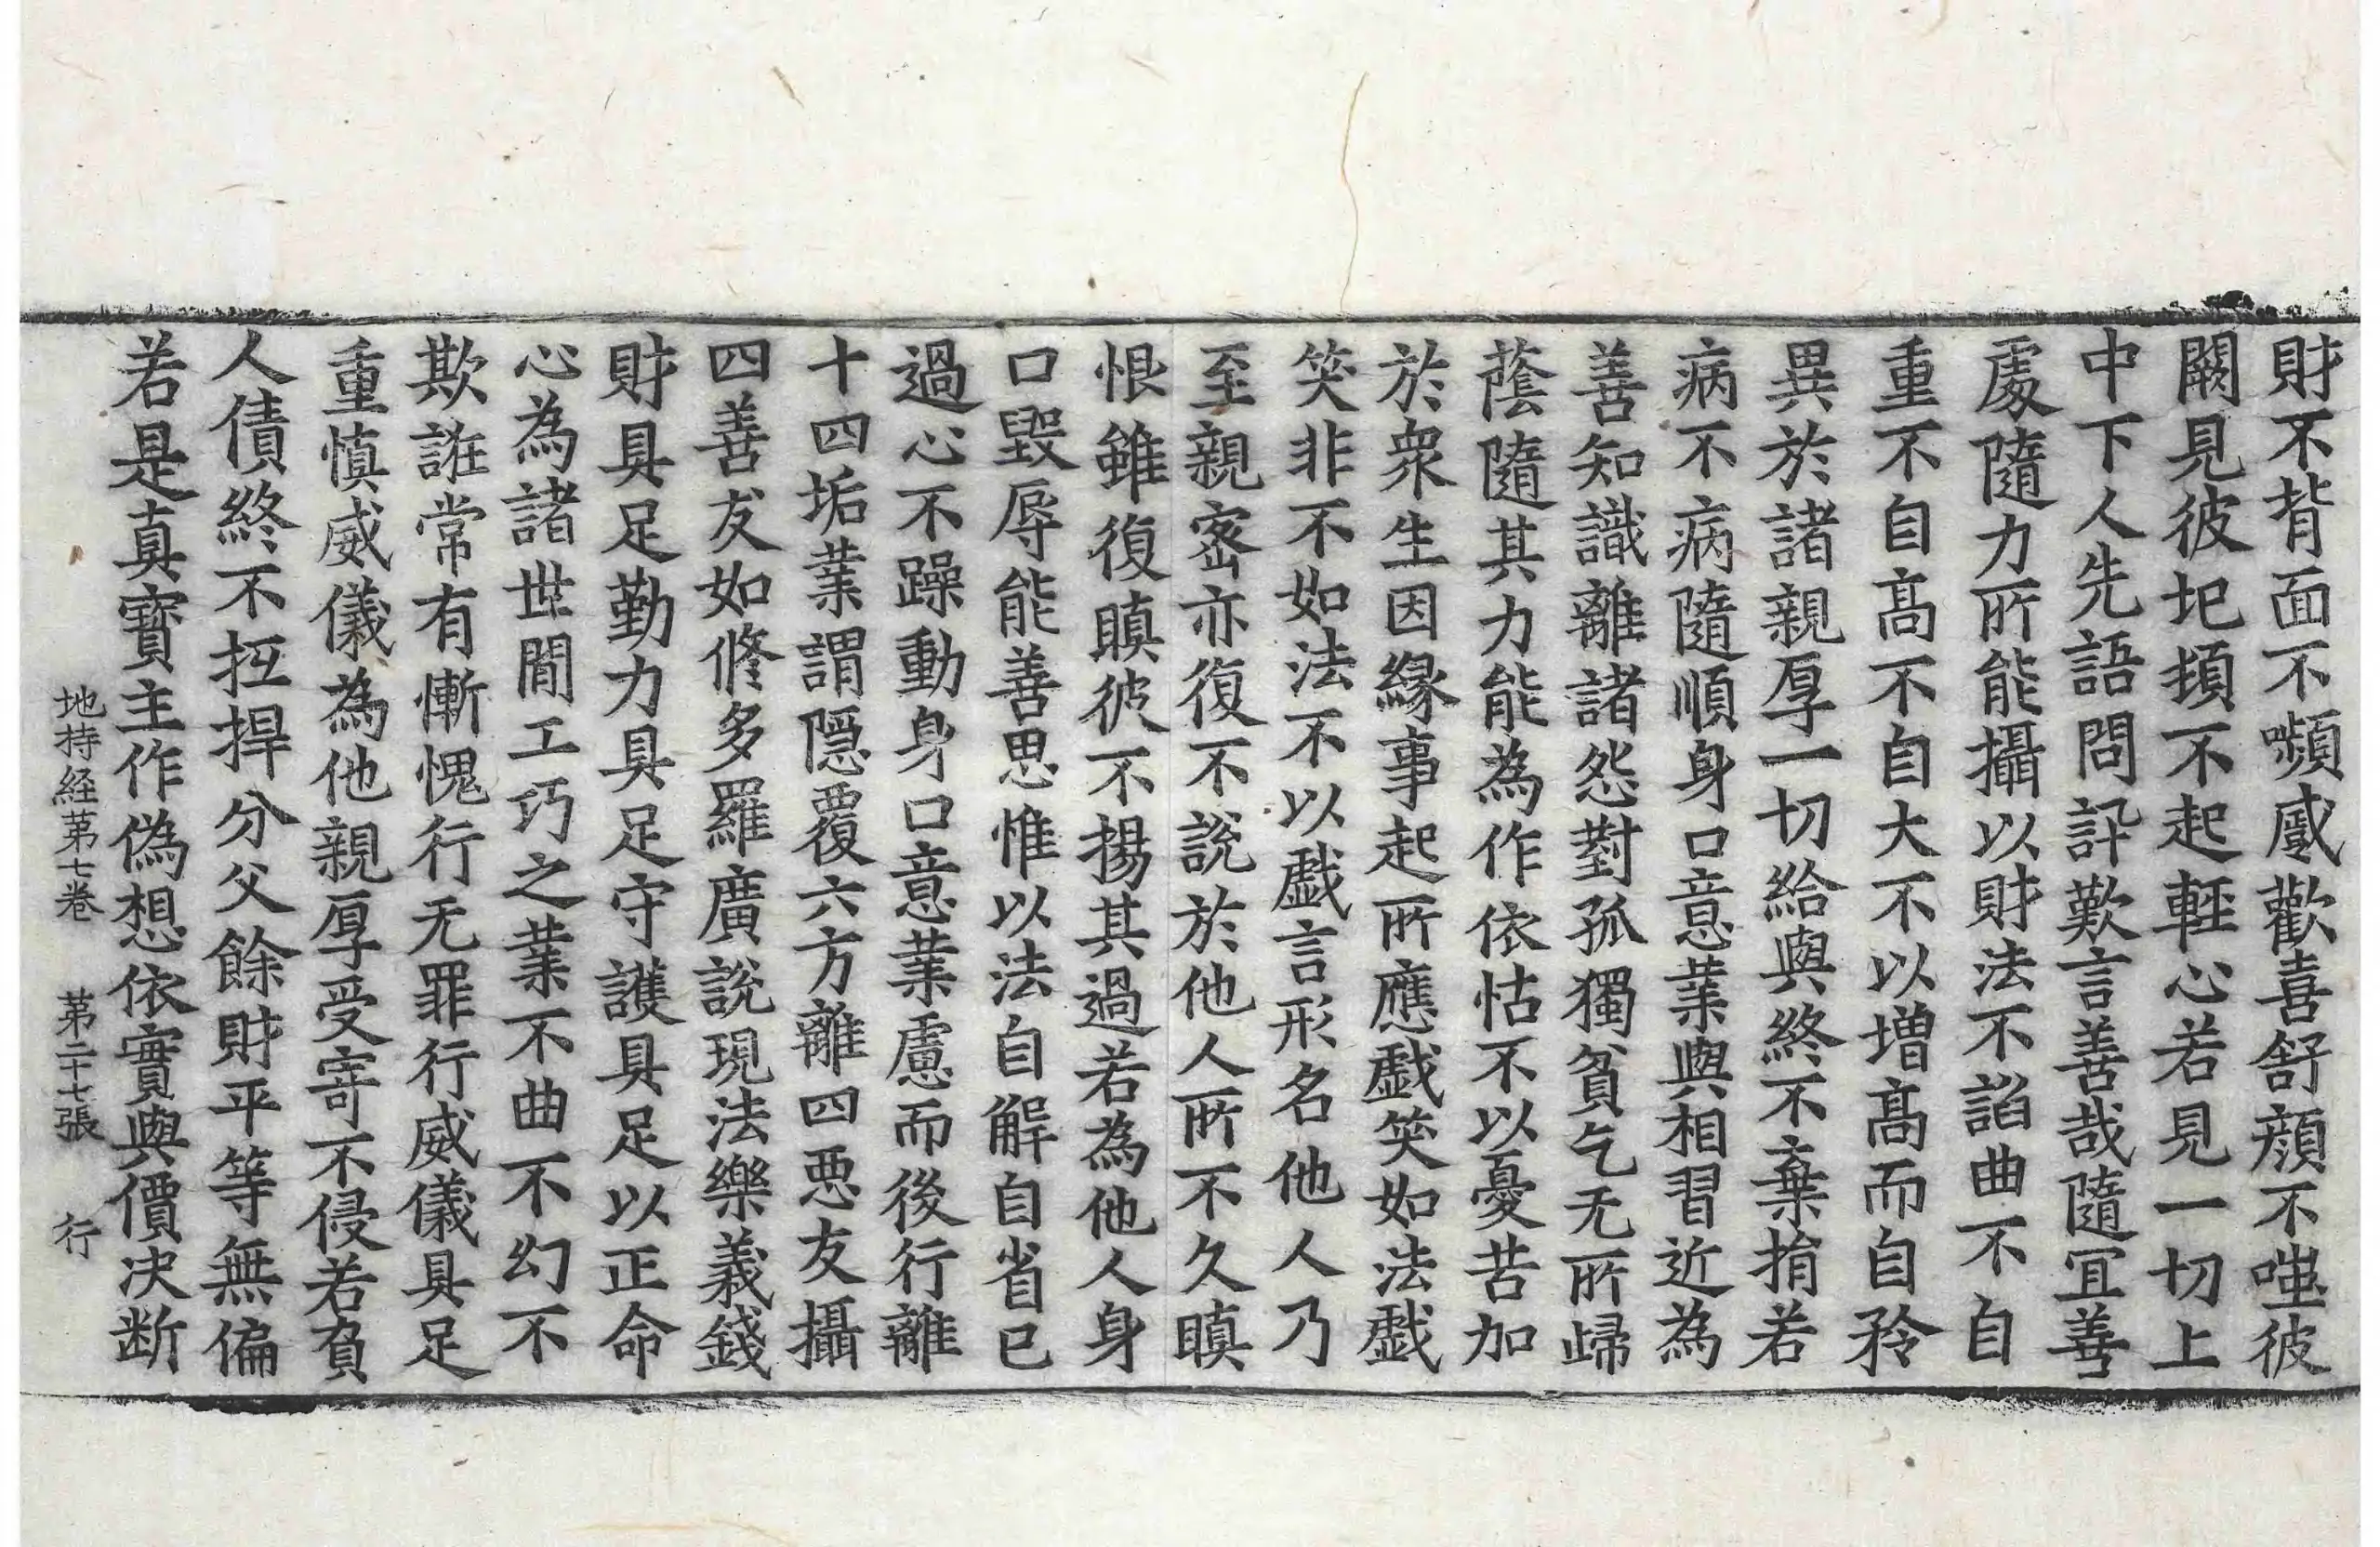 財不背面不嚬慼歡喜舒顔不嗤彼
闕見彼圯頓不起輕心若見一切上
中下人先語問訊歎言善哉隨冝善
處隨力所能攝以財法不諂曲不自
重不自髙不自大不以増髙而自矜
異於諸親厚一切給與終不棄捐若
病不病隨順身口意業與相習近為
善知識離諸怨對孤獨貧乞无所歸
蔭隨其力能為作依怙不以憂苦加
於衆生因縁事起所應戱笑如法戱
笑非不如法不以戱言形名他人乃
至親宻亦復不說於他人所不久瞋
恨雖復瞋彼不揚其過若為他人身
口毀辱能善思惟以法自解自省已
過心不躁動身口意業慮而後行離
十四垢業謂隱覆六方離四惡友攝
四善友如修多羅廣說現法樂義錢
財具足勤力具足守護具足以正命
心為諸世間工巧之業不曲不幻不
欺誑常有慚愧行无罪行威儀具足
重慎威儀為他親厚受寄不侵若負
人債終不抂捍分父餘財平等無偏
若是真寶主作偽想依實與價決断
地持経苐七卷 苐二十七張 行